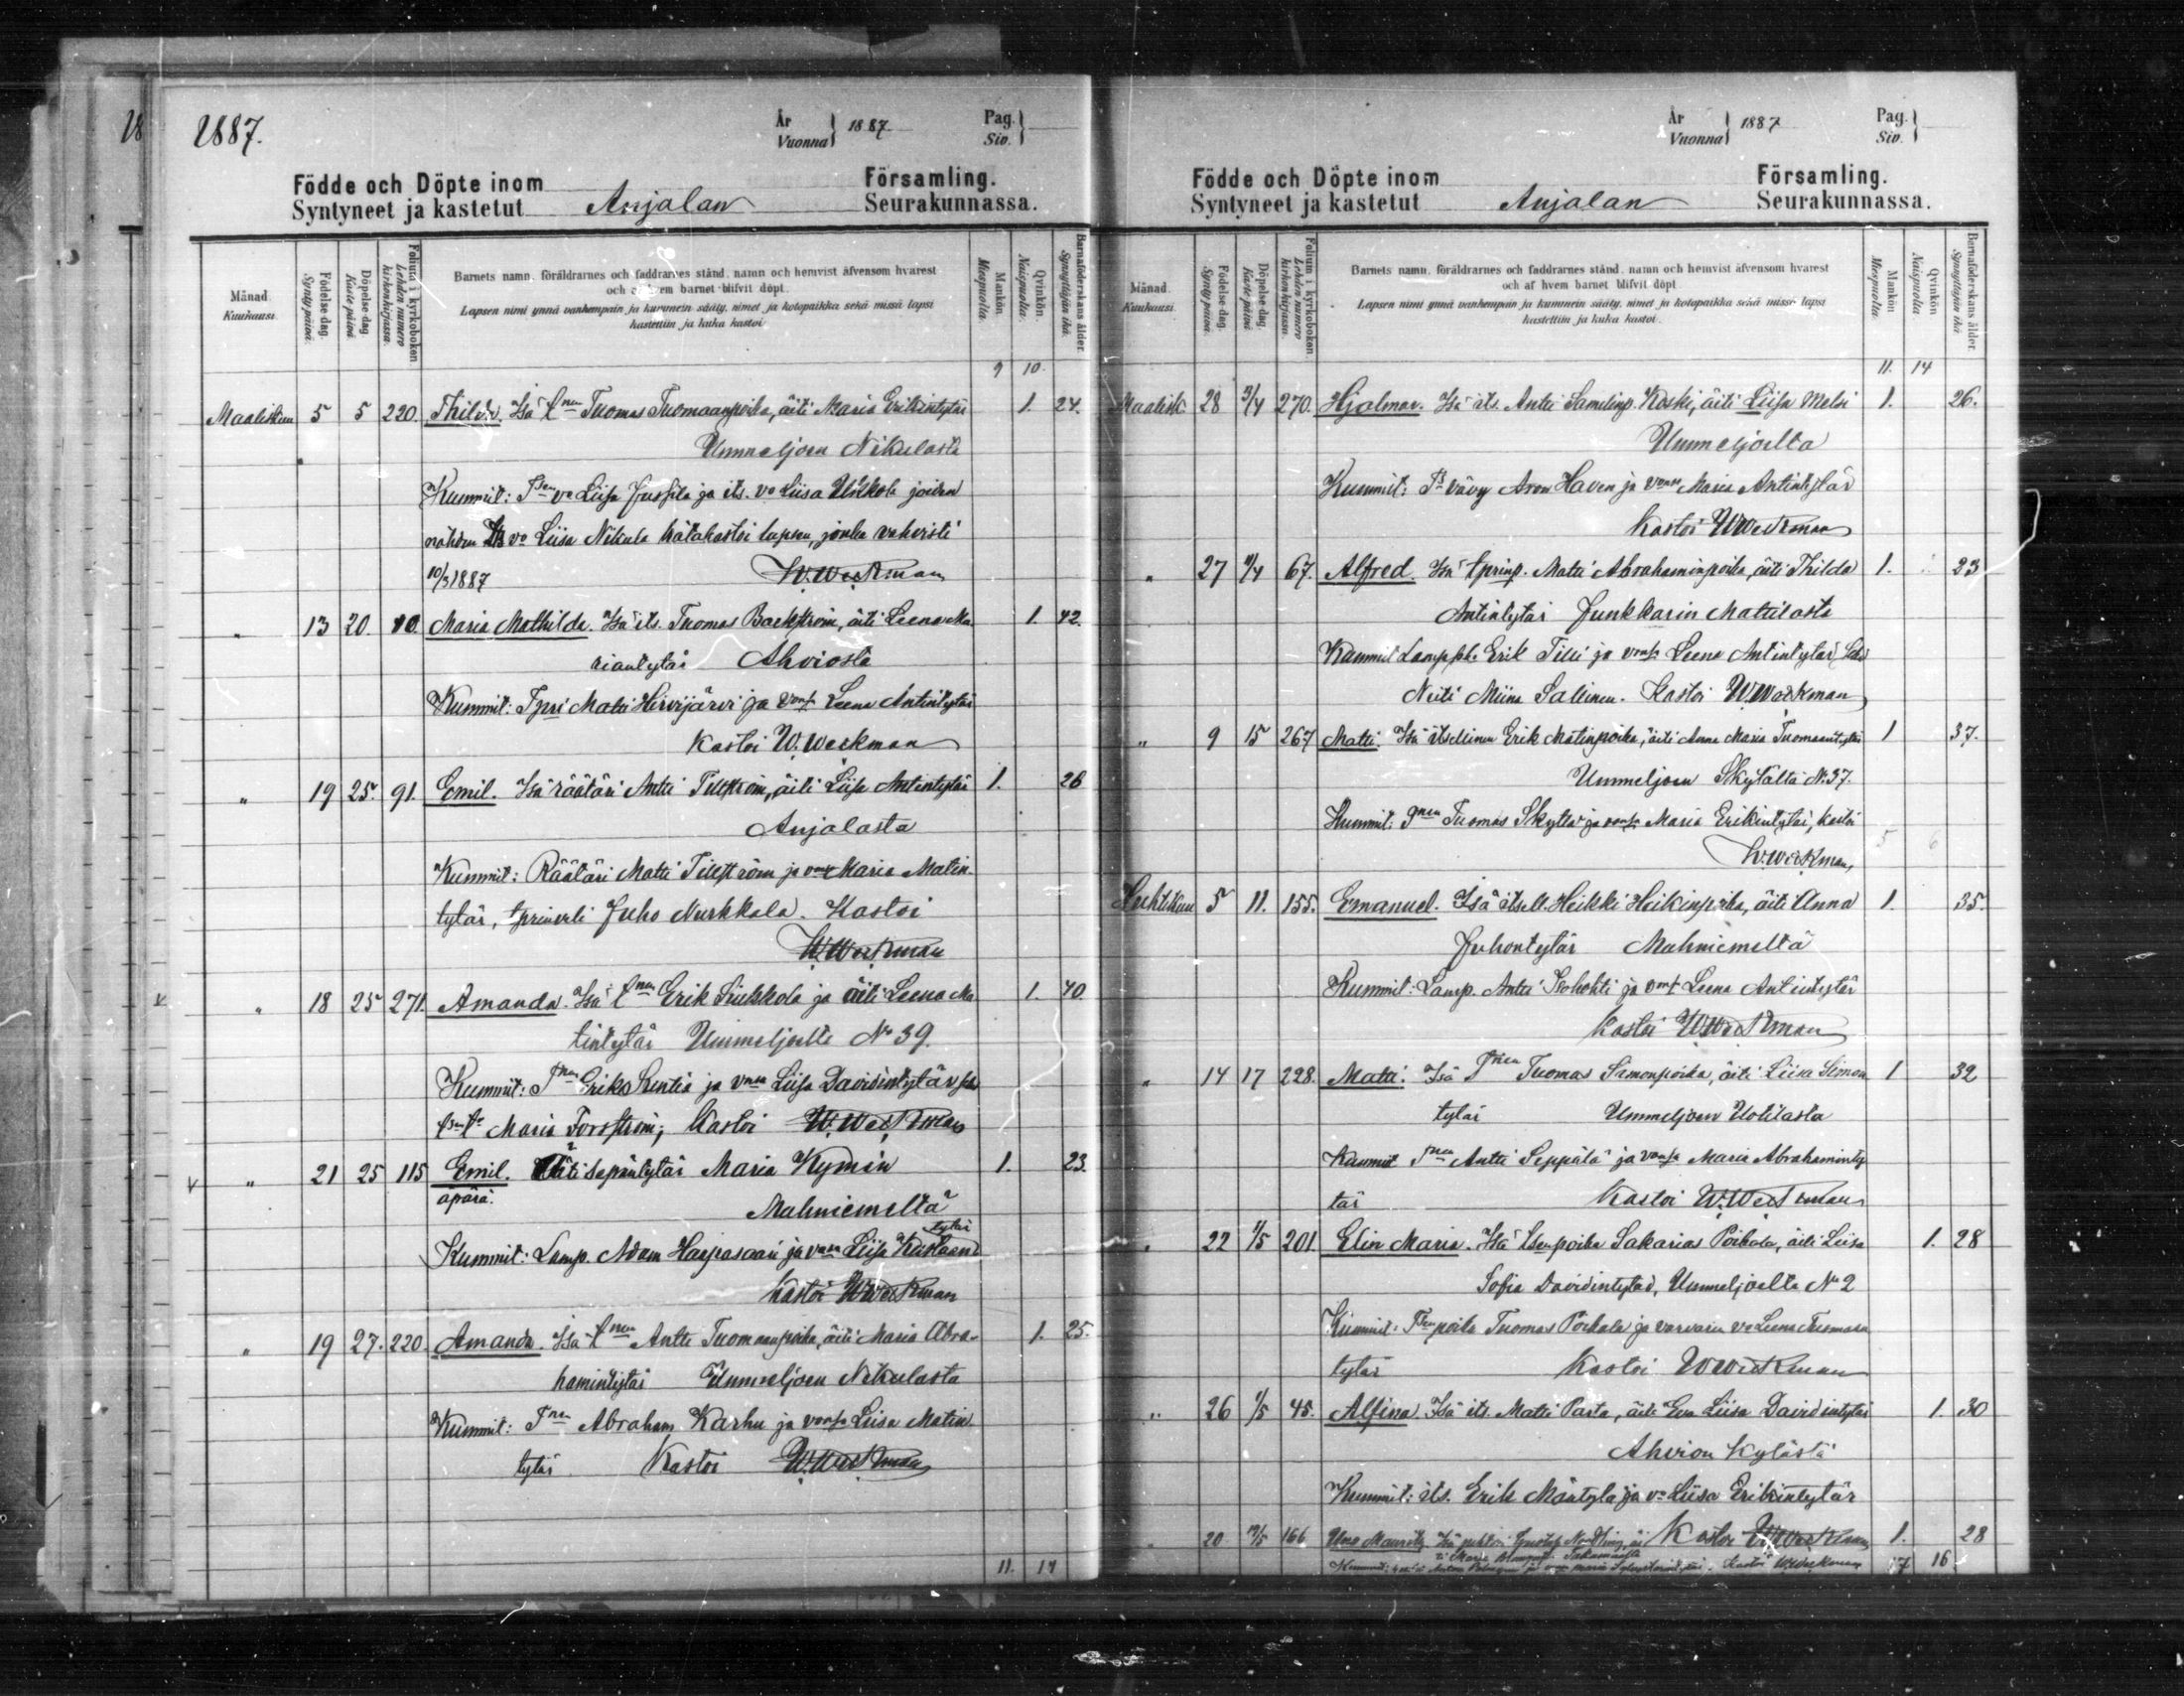 18
1887.
År
Vuonna } 1887.
Pag.
Siv. }
Födde och Döpte inom
Syntyneet ja kastetut Anjalan
Församling.
Seurakunnassa.
Månad
Kuukausi.
Födelse dag.
Synty päivä.
Döpelse dag.
Kaste päivä.
Folium i kyrkoboken.
Lehden numero kirkonkirjassa.
Barnets namn, föräldrarnes och faddrarnes stånd, namn och hemvist äfvensom hvarest
och af hvem barnet blifvit döpt.
Lapsen nimi ynnä vanhempain ja kummein sääty, nimet ja kotopaikka sekä missä lapsi
kastettiin ja kuka kastoi.
Mankön.
Miespuolia.
Qvinkön.
Naispuolia.
Barnaföderskans ålder.
Synnyttäjän ikä.
9 10.
Maaliskuu 5 5 220. Thilda. Isä Tuomas Tuomaanpoika, äiti Maria Erikintytär 1. 24.
Ummeljoen Nikulasta
Kummit: Liisa Jussila ja its. vo Liisa Ukkola joiden
nähden vo Liisa Nikula hätäkastoi lapsen, jonka vahvisti
10/3 1887 W. Weckman
" 13 20. 10. Maria Mathilda. Isä its. Tuomas Backström, äiti Leena Ma 1. 42.
riantytär Ahviosta
Kummit: Matti Hirvijärvi ja Leena Antintytär
Kastoi W. Weckman
" 19 25. 91. Emil. Isä räätäri Antti Tillström, äiti Liisa Antintytär 1. 26
Anjalasta
Kummit: Räätäri Matti Tillström ja Maria Matin
tytär, Juho Nurkkala. Kastoi
W. Weckman
" 18 25 271. Amanda. Isä Erik Siukkola ja äiti Leena Ma 1. 40.
tintytär Ummeljoelta No 39.
Kummit: Erik ja Liisa Davidintytär
Maria Forsström, Kastoi W. Weckman
" 21 25 115 Emil. Äiti sepäntytär Maria Kymin 1. 23.
äpärä.
Mahniemeltä
tytär
Kummit: Lamp. Adam Haapasaari ja Liisa Kustaan
Kastoi W. Weckman
" 19 27. 220. Amanda. Isä Antti Tuomaanpoika, äiti Maria Abra- 1. 25.
hamintytär Ummeljoen Nikulasta
Kummit: Abraham Karhu ja Liisa Matin
tytär Kastoi W. Weckman
11. 14
År
Vuonna } 1887
Pag.
Siv. }
Födde och Döpte inom
Syntyneet ja kastetut Anjalan
Församling.
Seurakunnassa.
Månad
Kuukausi.
Födelse dag.
Synty päivä.
Döpelse dag.
Kaste päivä.
Folium i kyrkoboken.
Lehden numero kirkonkirjassa.
Barnets namn, föräldrarnes och faddrarnes stånd, namn och hemvist äfvensom hvarest
och af hvem barnet blifvit döpt.
Lapsen nimi ynnä vanhempain ja kummein sääty, nimet ja kotopaikka sekä missä lapsi
kastettiin ja kuka kastoi.
Mankön
Miespuolia.
Qvinkön
Naispuolia.
Barnaföderskans ålder.
Synnyttäjän ikä.
11. 14
Maalisk. 28 3/4 270. Hjalmar. Isä its. Antti Koski, äiti Liisa 1. 26.
Ummeljoelta
Kummit: vävy Aron Haven ja Maria Antintytär
Kastoi W Weckman
" 27 67. Alfred. Isä Matti Abrahaminpoika, äiti Thilda 1. 23
Antintytär Junkkarin Mattilasta
Kummit Erik Tilli ja Leena Antintytär
Neiti Miina Sallinen. Kastoi W. Weckman
" 9 15 267 Matti. Isä itsellinen Erik Matinpoika, äiti Anna Maria Tuomaantytär 1 37.
Ummeljoen Skytältä No. 37.
Kummit: Tuomas Skyttä ja Maria Erikintytär, kastoi
W. Weckman, 5 6
Huhtikuu 5 11. 155. Emanuel. Isä itsell. Heikki Heikinpoika, äiti Anna 1. 35.
Juhontytär Mahniemeltä
Kummit: Lamp. Antti ja Leena Antintytär
Kastoi W. Weckman
" 14 17 228. Matti. Isä Tuomas Simonpoika, äiti Liisa Simon 1 32
tytär Ummeljoen Uotilasta
Kummit Antti Seppälä ja Maria Abraham
tär Kastoi W. Weckman
" 22 1/5 201. Elin Maria. Isä Sakarias Poikola, äiti Liisa 1. 28
Sofia Davidintytär, Ummeljoelta No 2
Kummit: poika Tuomas Poikola ja vo Leena Tuomaan
tytär Kastoi W Weckman
" 26 1/5 45. Alfina. Isä its. Matti Parta, äiti Eva Liisa Davidintytär 1. 30
Ahvion kylästä
Kummit: its. Erik Mäntylä ja vo Liisa Erikintytär
20 166 Mauritz Isä Kastoi W Weckman 1. 28
Maria
Kummit: Kastoi W Weckman 17 16